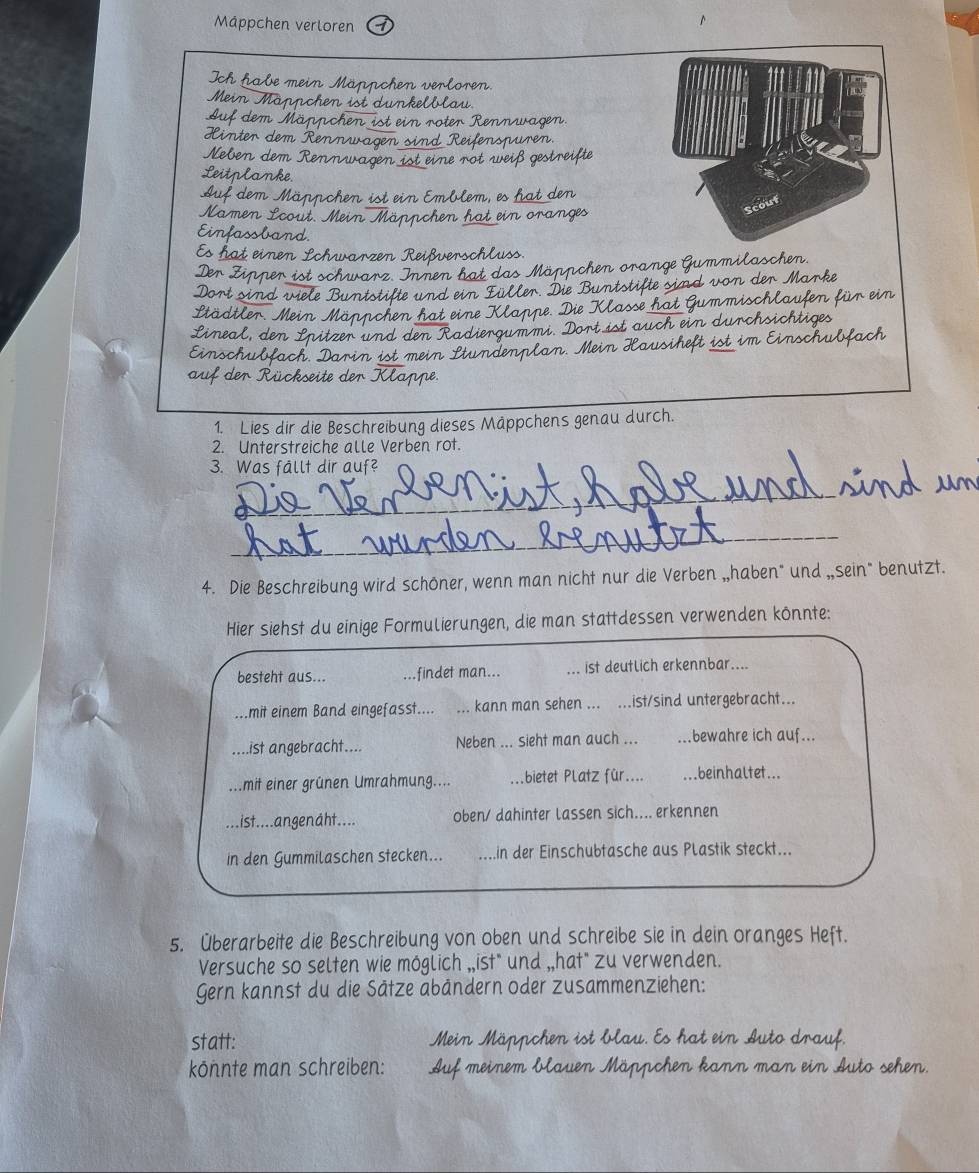 Mäppchen verloren 1
Ich habe mein Mäppchen verloren.
Mein Mäppchen ist dunkelblau.
Auf dem Mäppchen ist ein roter Rennwagen.
Hinter dem Rennwagen sind Reifenspuren.
Neben dem Rennwagen ist eine rot weiß gestreifte
Leitplanke.
Auf dem Mäppchen ist ein Emblem, es hat den
Namen Scout. Mein Mäppchen hat ein oranges
Einfassband.
Es hat einen Schwarzen Reißverschluss.
Der Zipper ist schwarz. Innen hat das Mäppchen orange Gummilaschen.
Dort sind viele Buntstifte und ein Füller. Die Buntstifte sind von der Marke
Städtler. Mein Mäppchen hat eine Klappe. Die Klasse hat Gummischlaufen für ein
Lineal, den Spitzer und den Radiergummi. Dort ist auch ein durchsichtiges
Einschubfach. Darin ist mein Stundenplan. Mein Hausiheft ist im Einschubfach
auf der Rückseite der Klappe.
Scout
1. Lies dir die Beschreibung dieses Mäppchens genau durch.
2. Unterstreiche alle Verben rot.
3. Was fällt dir auf?
Die Verben: ist, habe und sind un
hat wurden benutzt
4. Die Beschreibung wird schöner, wenn man nicht nur die Verben „haben" und „sein" benutzt.
Hier siehst du einige Formulierungen, die man stattdessen verwenden könnte:
besteht aus... ...findet man... ... ist deutlich erkennbar....
...mit einem Band eingefasst.... ... kann man sehen ... ...ist/sind untergebracht...
....ist angebracht.... Neben ... sieht man auch ... ...bewahre ich auf...
...mit einer grünen Umrahmung.... ...bietet Platz für.... ...beinhaltet...
...ist....angenäht.... oben/ dahinter lassen sich.... erkennen
in den Gummilaschen stecken... ....in der Einschubtasche aus Plastik steckt...
5. Überarbeite die Beschreibung von oben und schreibe sie in dein oranges Heft.
Versuche so selten wie möglich „ist" und „hat" zu verwenden.
Gern kannst du die Sätze abändern oder zusammenziehen:
statt: Mein Mäppchen ist blau. Es hat ein Auto drauf.
könnte man schreiben: Auf meinem blauen Mäppchen kann man ein Auto sehen.